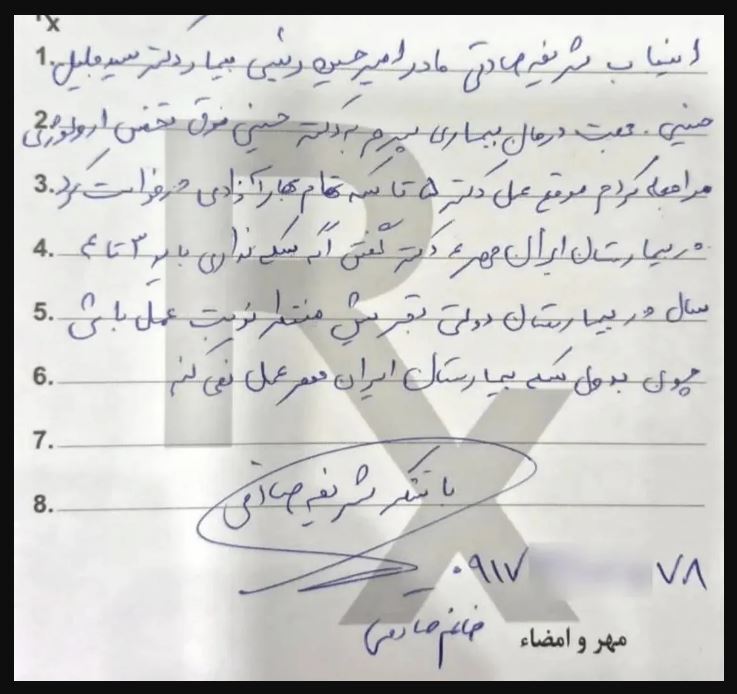 Rx
1. اینجانب شریفه صادقی مادر امیرحسین رئیسی بیمار دکتر سید جلیل
2. حسینی. جهت درمان بیماری پسرم به دکتر حسینی فوق تخصص ارولوژی
3. مراجعه کردم موقع عمل دکتر ۵ تا سکه تمام بهار آزادی درخواست کرد.
4. در بیمارستان ایران مهر، دکتر گفتش اگه سکه نداری باید ۳ تا ۴
5. سال در بیمارستان دولتی تجریش منتظر نوبت عمل باشی
6. چون بدون سکه بیمارستان ایران مهر عمل نمی کنم
7.
8. با تشکر شریفه صادقی
۰۹۱۷ ۷۸
خانم صادقی
مهر و امضاء